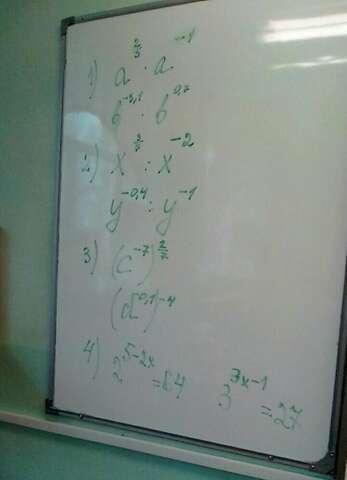 1) a^{2/3} · a^{-1}
b^{-3,1} · b^{0,7}
2) x^{3/7} : x^{-2}
y^{-0,4} : y^{-1}
3) (c^{-7})^{2/7}
(d^{0,1})^{-4}
4) 2^{5-2x} = 64 3^{3x-1} = 27